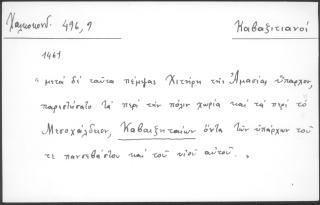 Χαλκοκονδ. 496, 9
Καβαξιτιανοί
1461
"μετὰ δὲ ταῦτα πέμψας Χιτήρη τῆς Ἀμασίας ὕπαρχον,
παρεστήσατο τὰ περὶ τὴν πόλιν χωρία καὶ τὰ περὶ τὸ
Μεσοχάλδιον, Καβαξηταίων ὄντα τῶν ὑπάρχων τοῦ
τε πανσεβάστου καὶ τοῦ υἱοῦ αὐτοῦ."